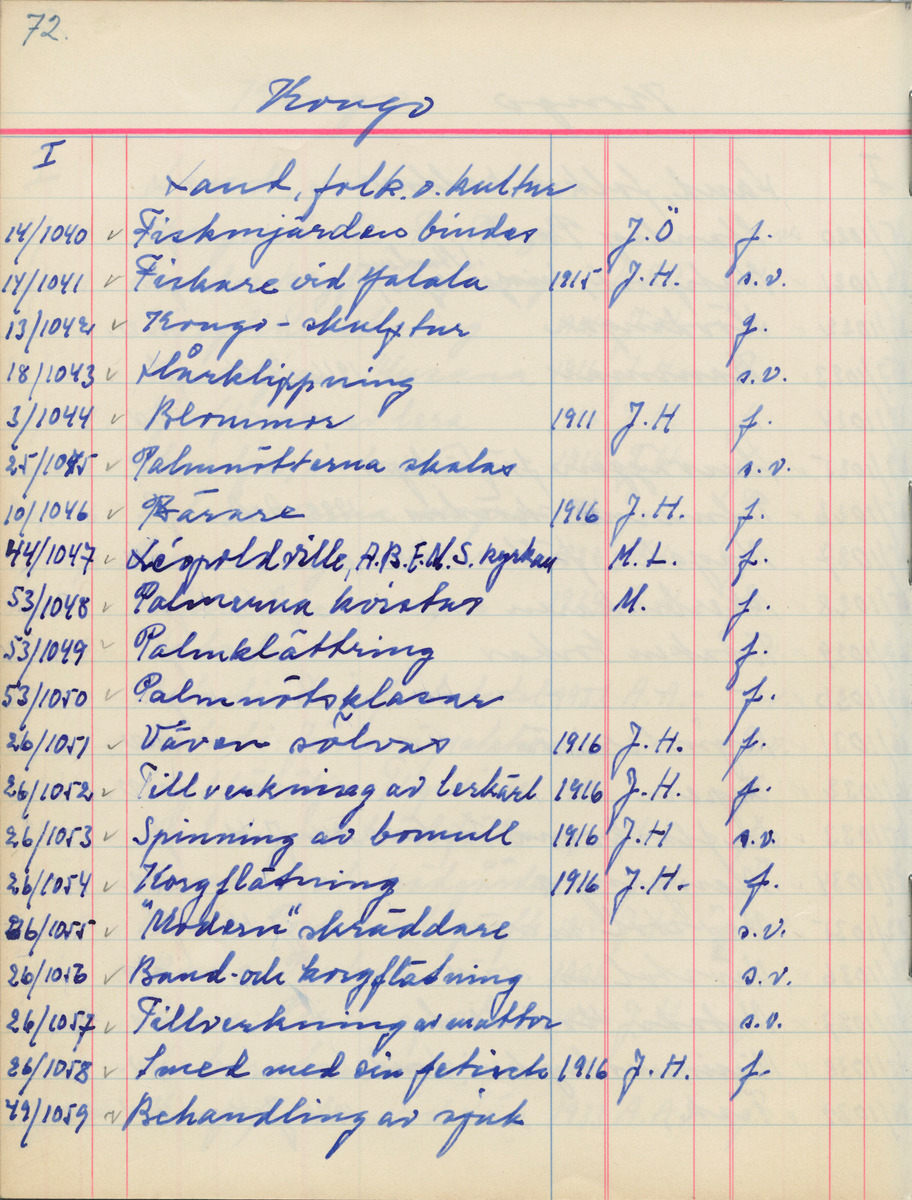 72.
Kongo
I
Land, folk o. kultur
14/1040 v Fiskmjärden bindes J.Ö f.
14/1041 v Fiskare vid Yalala 1915 J.H. s.v.
13/1042 v Kongo-skulptur g.
18/1043 v Hårklippning s.v.
3/1044 v Blommor 1911 J.H f.
25/1045 v Palmnötterna skalas s.v.
10/1046 v Bärare 1916 J.H. f.
44/1047 v Léopoldville, A.B.F.M.S. kyrkan M.L. f.
53/1048 v Palmerna kvistas M. f.
53/1049 v Palmklättring f.
53/1050 v Palmnötsklasar f.
26/1051 v Väven sölvas 1916 J.H. f.
26/1052 v Tillverkning av lerkärl 1916 J.H. f.
26/1053 v Spinning av bomull 1916 J.H s.v.
26/1054 v Korgflätning 1916 J.H. f.
26/1055 v "Modern" skräddare s.v.
26/1056 v Band- och korgflätning s.v.
26/1057 v Tillverkning av mattor s.v.
26/1058 v Smed med sin fetisch 1916 J.H. f.
49/1059 v Behandling av sjuk